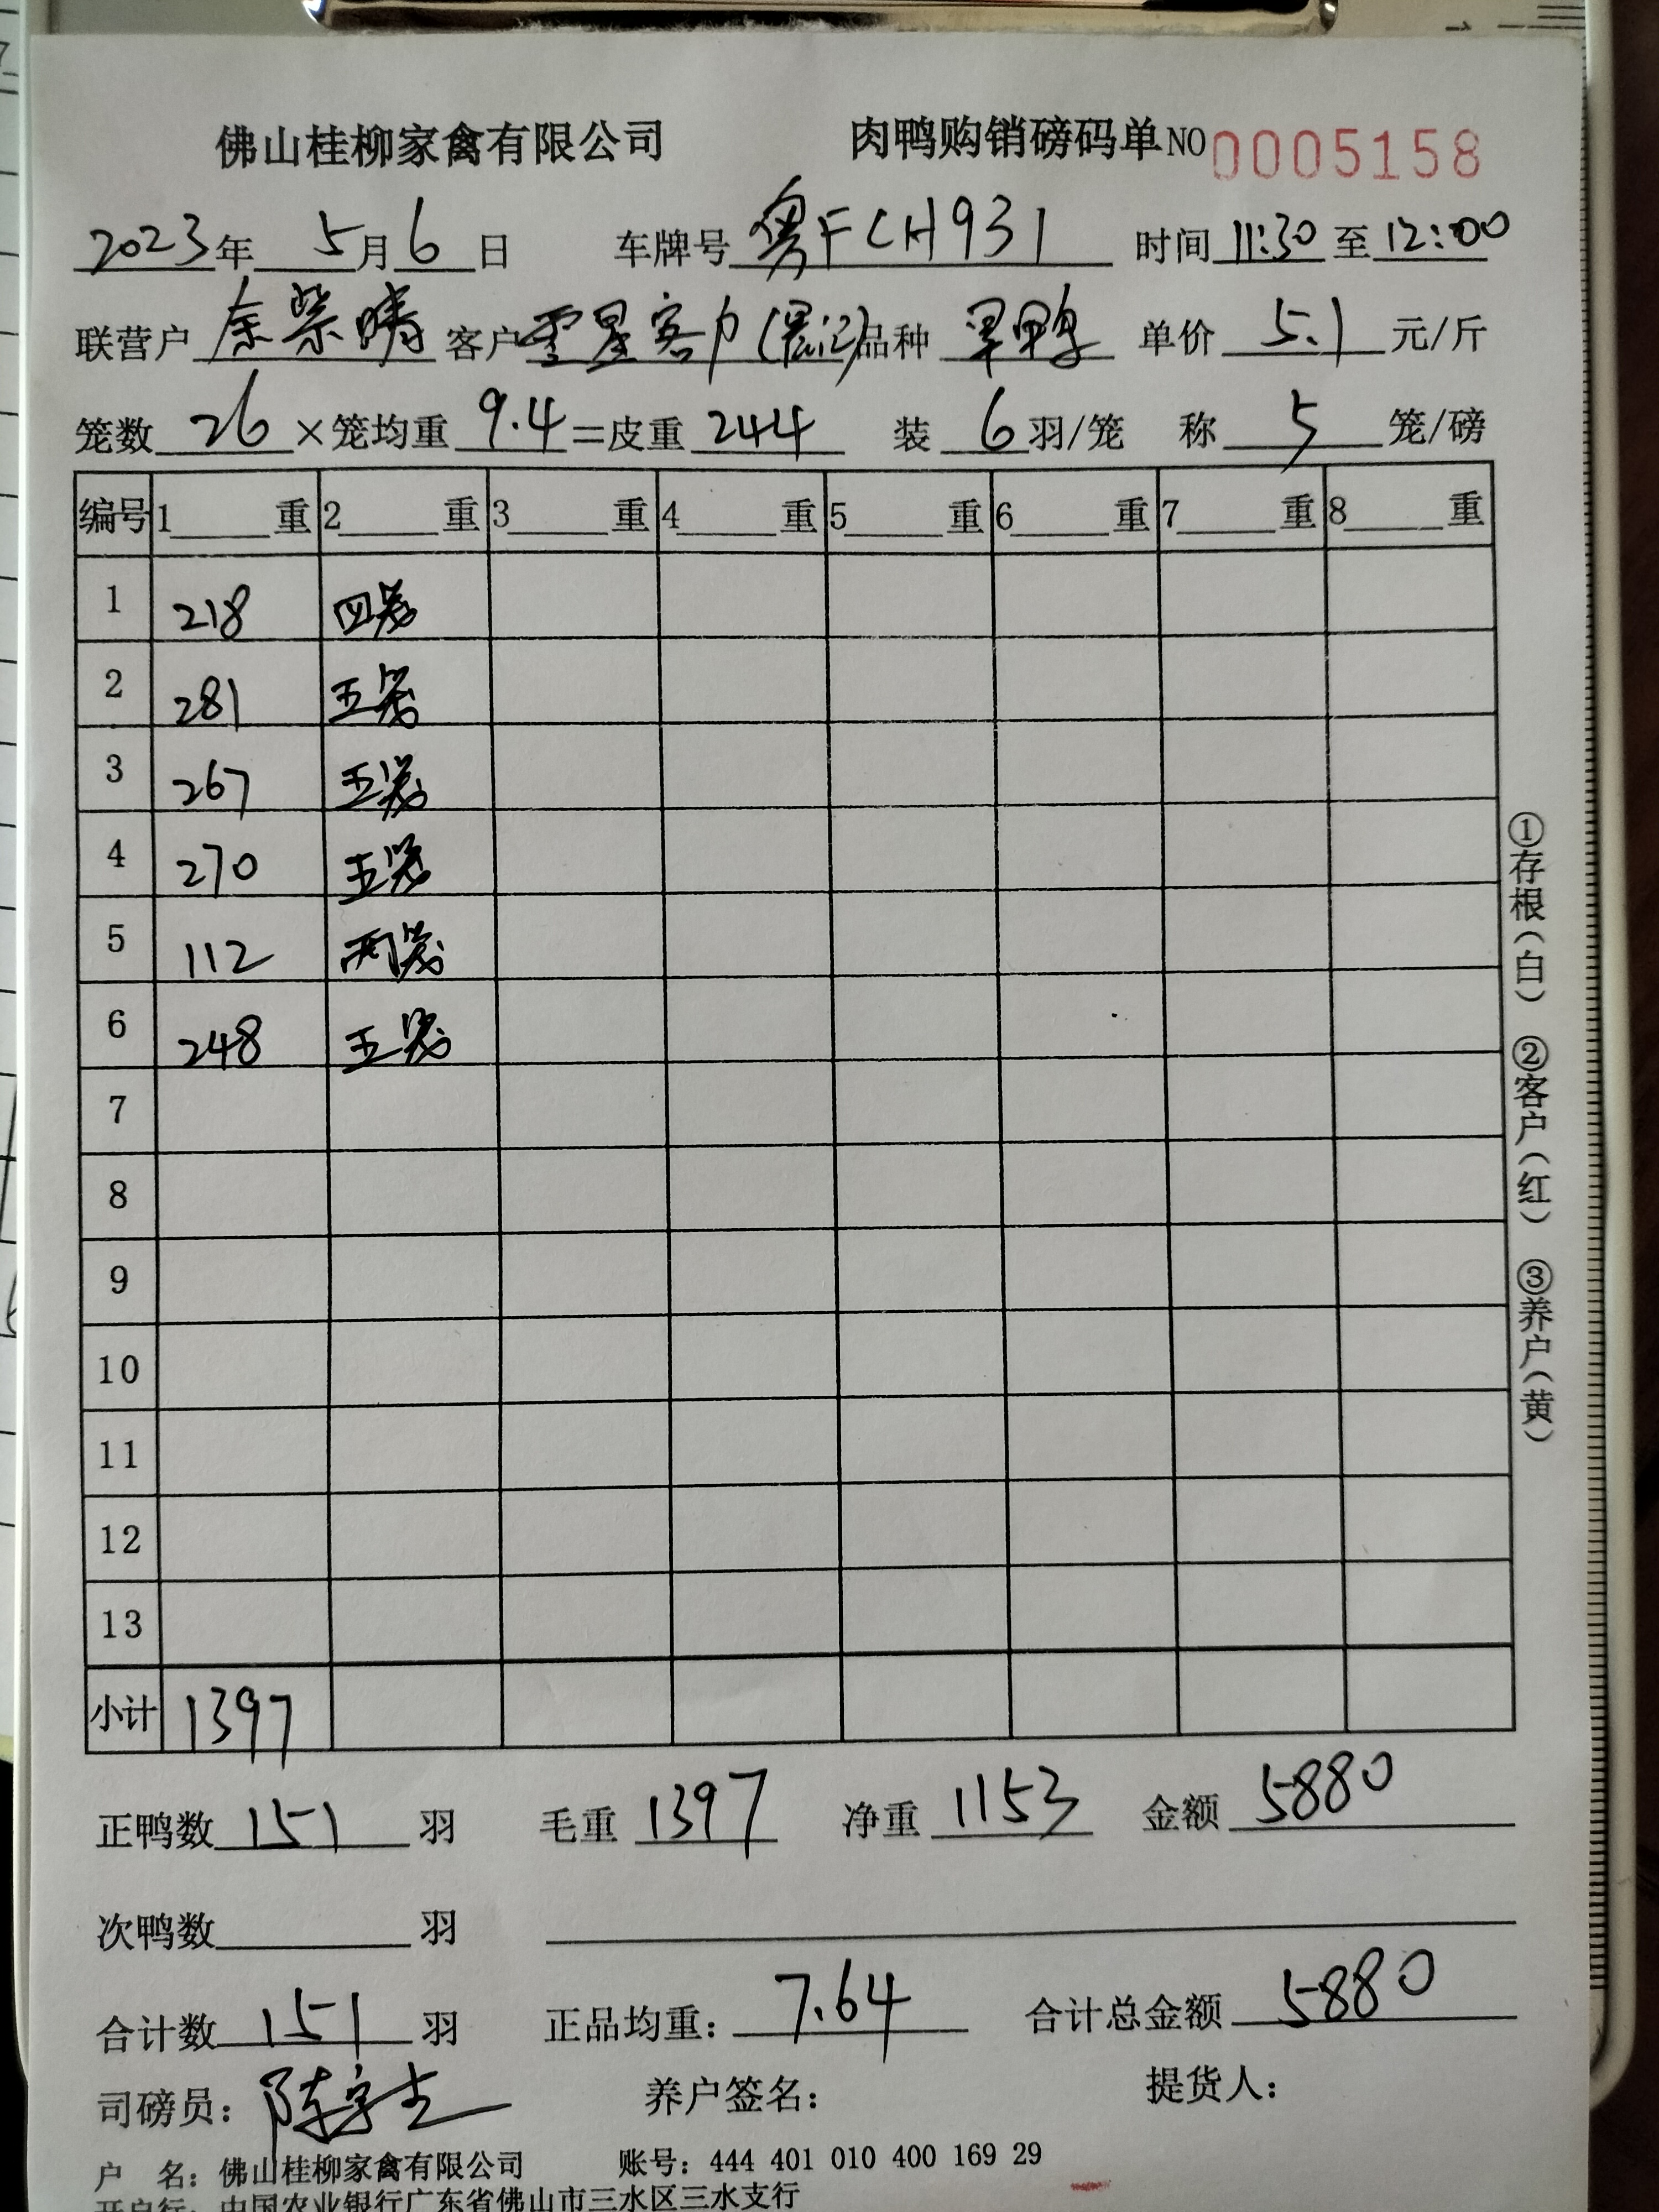 佛山桂柳家禽有限公司 肉鸭购销磅码单NO 0005158
2023年 5月6日 车牌号 粤FCH931 时间 11:30 至 12:00
联营户 余紫晴 客户 零星客户( 记) 品种 旱鸭 单价 5.1 元/斤
笼数 26 ×笼均重 9.4 =皮重 244 装 6 羽/笼 称 5 笼/磅
编号 1 重 2 重 3 重 4 重 5 重 6 重 7 重 8 重
1 218 四笼
2 281 五笼
3 267 五笼
4 270 五笼
5 112 两笼
6 248 五笼
7
8
9
10
11
12
13
小计 1397
①存根(白) ②客户(红) ③养户(黄)
正鸭数 151 羽 毛重 1397 净重 1153 金额 5880
次鸭数 羽
合计数 151 羽 正品均重: 7.64 合计总金额 5880
司磅员: 陈 养户签名: 提货人:
户 名: 佛山桂柳家禽有限公司 账号: 444 401 010 400 169 29
开户行: 中国农业银行广东省佛山市三水区三水支行